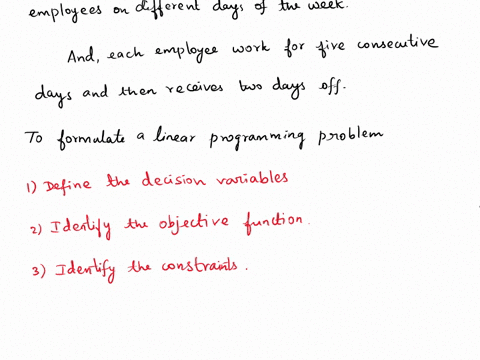 employees on different days of the week.
And, each employee work for five consecutive
days and then receives two days off.
To formulate a linear programming problem
1) Define the decision variables
2) Identify the objective function.
3) Identify the constraints.